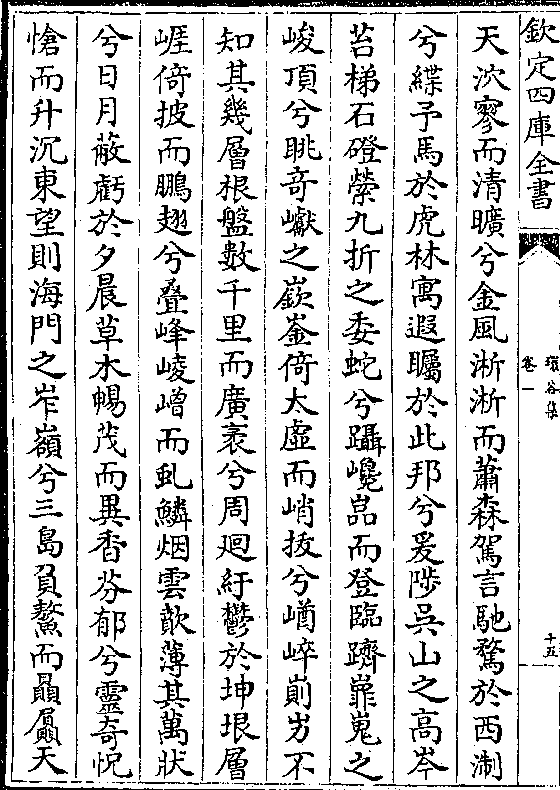 欽定四庫全書
環谷集
卷一
十五
天泬寥而清曠兮金風淅淅而蕭森駕言馳騖於西淛
兮緤予馬於虎林寓遐矚於此邦兮爰陟吳山之高岑
苔梯石磴縈九折之委蛇兮躡巉嵓而登臨躋嶊嵬之
峻頂兮眺竒巘之嶔崟倚太虛而峭拔兮崷崪崱屴不
知其幾層根盤數千里而廣袤兮周廻紆鬱於坤垠層
崕倚披而鵬翅兮疊峰崚嶒而虬鱗烟雲歊薄其萬狀
兮日月蔽虧於夕晨草木暢茂而異香芬郁兮靈竒怳
愴而升沉東望則海門之岝嶺兮三島負鰲而贔屭天